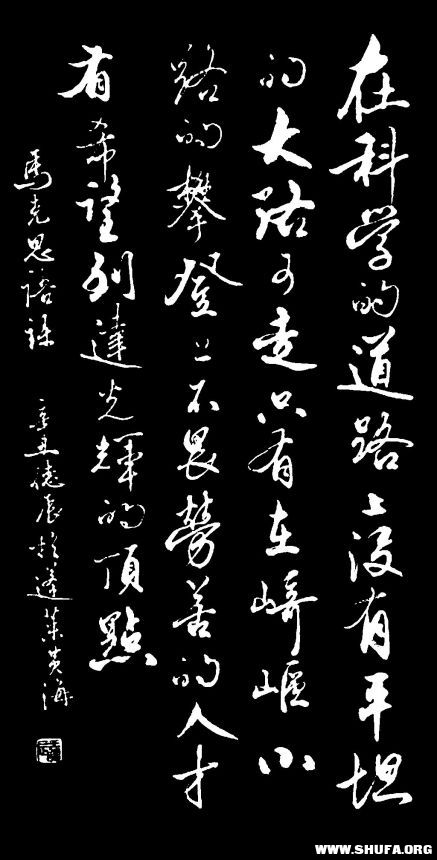 在科学的道路上没有平坦
的大路可走只有在崎嶇小
路的攀登上不畏勞苦的人才
有希望到達光輝的頂點
馬克思語録 辛丑德辰於蓬萊
WWW.SHUFA.ORG